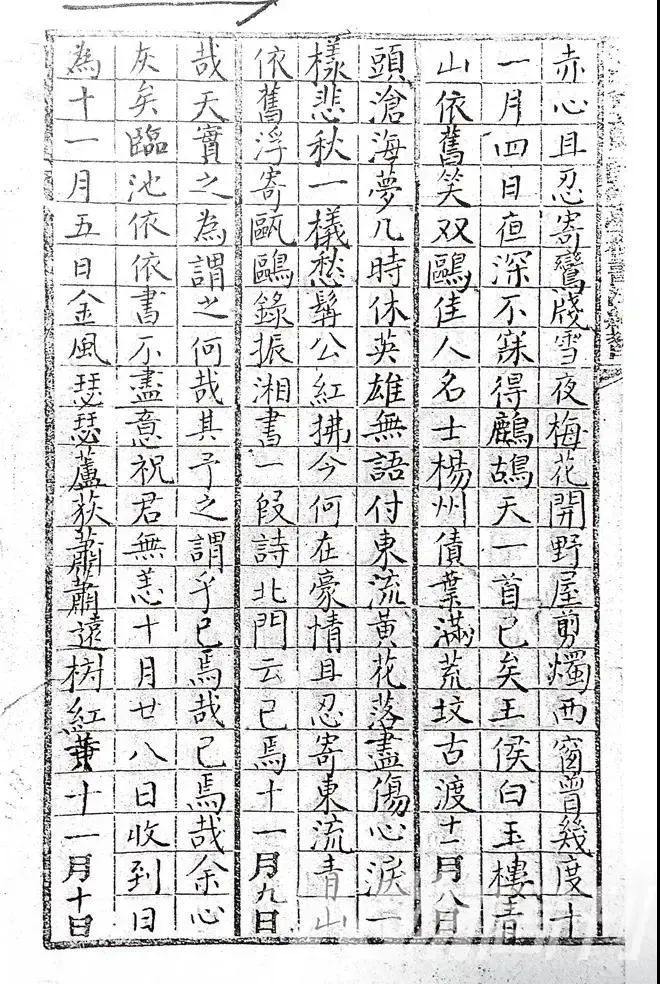 赤心且忍寄鸞牋雪夜梅花開野屋剪燭西窗曾幾度十
一月四日夜深不寐得鷓鴣天一首已矣王侯白玉樓青
山依舊笑双鷗佳人名士楊州債葉滿荒坟古渡十一月八日
頭滄海夢几時休英雄無語付東流黃花落盡傷心淚一
樣悲秋一樣愁髯公紅拂今何在豪情且忍寄東流青山
依舊浮寄甌鷗錄振湘書一段詩北門云已焉十一月九日
哉天實之為謂之何哉其予之謂乎已焉哉已焉哉余心
灰矣臨池依依書不盡意祝君無恙十月廿八日收到日
為十一月五日金風瑟瑟蘆荻蕭蕭遠樹紅黃十一月十日